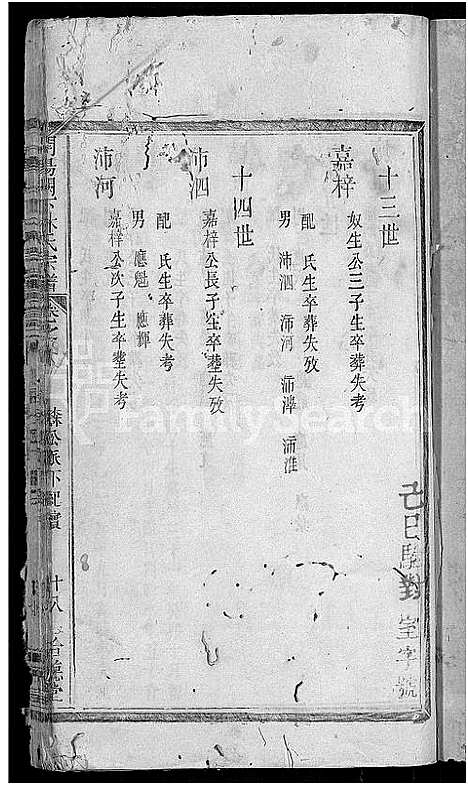 己巳 皇字號
十三世
嘉梓
奴生公三子生卒葬失攷
配 氏生卒葬失攷
男 沛泗 沛河 沛 沛淮
十四世
沛泗
嘉梓公長子生卒塟失攷
配 氏生卒葬失考
男 應魁 應輝
沛河
嘉梓公次子生卒塟失考
林氏宗譜
派下 十八
FamilySearch